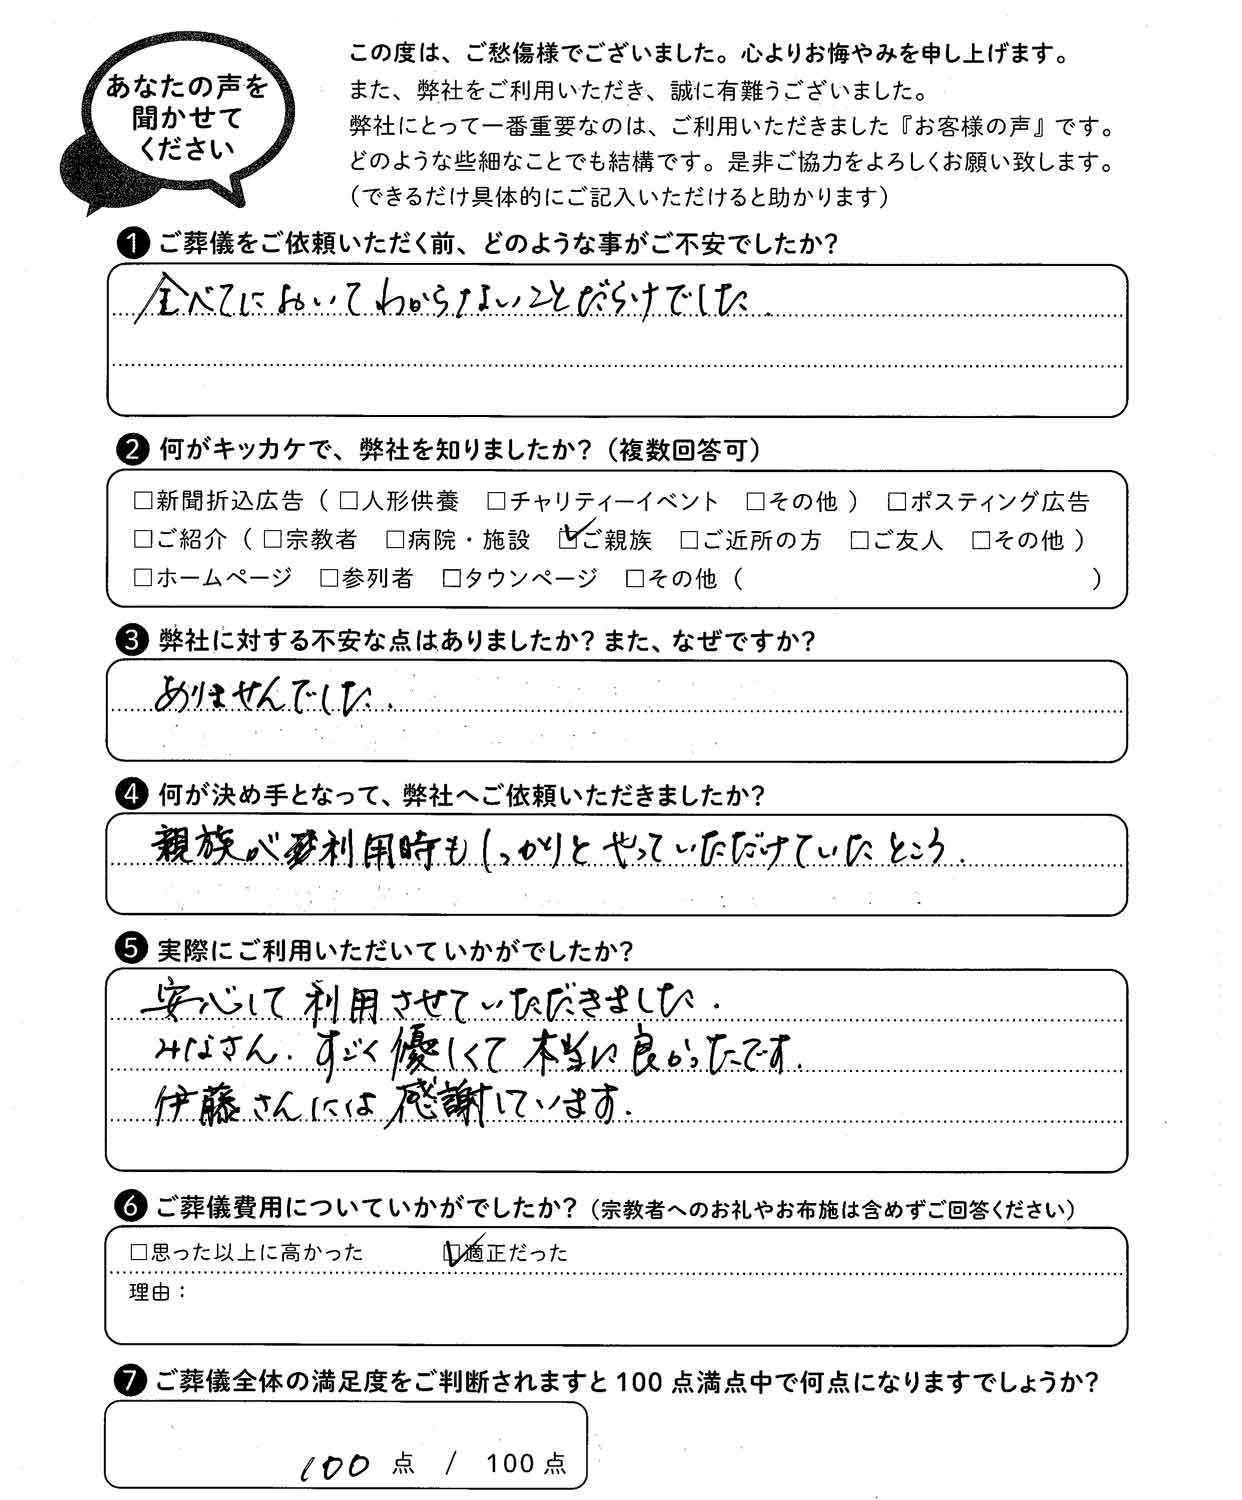 あなたの声を
聞かせて
ください
この度は、ご愁傷様でございました。心よりお悔やみを申し上げます。
また、弊社をご利用いただき、誠に有難うございました。
弊社にとって一番重要なのは、ご利用いただきました『お客様の声』です。
どのような些細なことでも結構です。是非ご協力をよろしくお願い致します。
（できるだけ具体的にご記入いただけると助かります）
1 ご葬儀をご依頼いただく前、どのような事がご不安でしたか？
全べてにおいてわからないことだらけでした.
2 何がキッカケで、弊社を知りましたか？（複数回答可）
□新聞折込広告（ □人形供養 □チャリティーイベント □その他 ） □ポスティング広告
□ご紹介（ □宗教者 □病院・施設 ☑ご親族 □ご近所の方 □ご友人 □その他 ）
□ホームページ □参列者 □タウンページ □その他（ ）
3 弊社に対する不安な点はありましたか？また、なぜですか？
ありませんでした.
4 何が決め手となって、弊社へご依頼いただきましたか？
親族が利用時もしっかりとやっていただけていたところ.
5 実際にご利用いただいていかがでしたか？
安心して利用させていただきました.
みなさん.すごく優しくて本当に良かったです.
伊藤さんには感謝しています.
6 ご葬儀費用についていかがでしたか？（宗教者へのお礼やお布施は含めずご回答ください）
□思った以上に高かった ☑適正だった
理由：
7 ご葬儀全体の満足度をご判断されますと100点満点中で何点になりますでしょうか？
100 点 / 100点